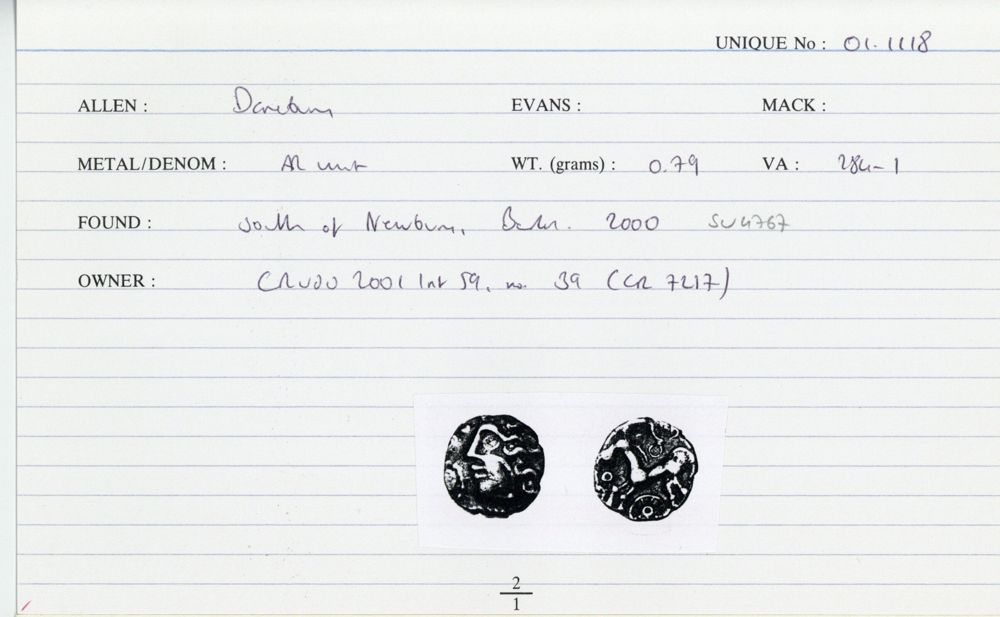 UNIQUE No : 01.1118
ALLEN : Danebury EVANS : MACK :
METAL/DENOM : AR unit WT. (grams) : 0.79 VA : 284-1
FOUND : South of Newbury, Berks. 2000 SU4767
OWNER : 2001 Int 59, no. 39 (CR 7217)
2
1